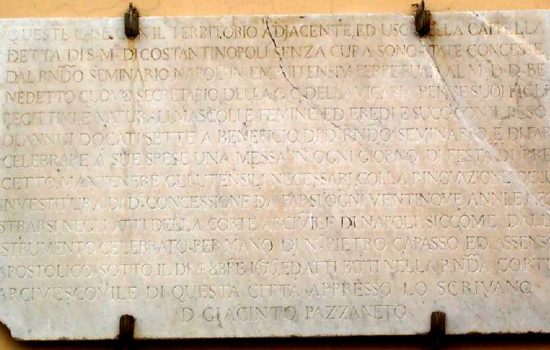 QUESTE CASE CON IL TERRITORIO ADJACENTE, ED USO DELLA CAPPELLA
DETTA DI S. M. DI COSTANTINOPOLI SENZA CURA SONO STATE CONCESSE
DAL RNDO SEMINARIO NAPOLIT. IN EMPHITEUSIM PERPETUAM AL M. D. D. BE
NEDETTO CUOMO SECRETARIO DELLA G. C. DELLA VICARIA PER SE SUOI FIGLI
LEGITTIMI E NATURALI MASCOLI E FEMINE ED EREDI E SUCC. CON IL PESO
DI ANNUI DOCATI SETTE A BENEFICIO DI D. RNDO SEMINARIO, E DI FAR
CELEBRARE A SUE SPESE UNA MESSA IN OGNI GIORNO DI FESTA DI PRE
CETTO, MANTENERE GLI UTENSILJ NECESSARJ, COLLA RINOVAZIONE DELL
INVESTITURA DI D. CONCESSIONE DA FARSI OGNI VENTINOVE ANNI, E
STRARSI NEGL'ATTI DELLA CORTE ARCIVILE DI NAPOLI SICCOME DALL
STRUMENTO CELEBRATO PER MANO DI N. PIETRO CAPASSO ED ASSENSO
APOSTOLICO SOTTO IL DI 4 8BRE 1676, ED ATTI FATTI NELLA RNDA CORTE
ARCIVESCOVILE DI QUESTA CITTÀ APPRESSO LO SCRIVANO
D. GIACINTO PAZZANETO